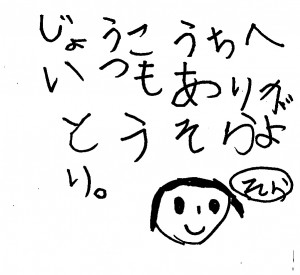 じょうこうちへ
いつもありが
とうそらよ
り。
そら